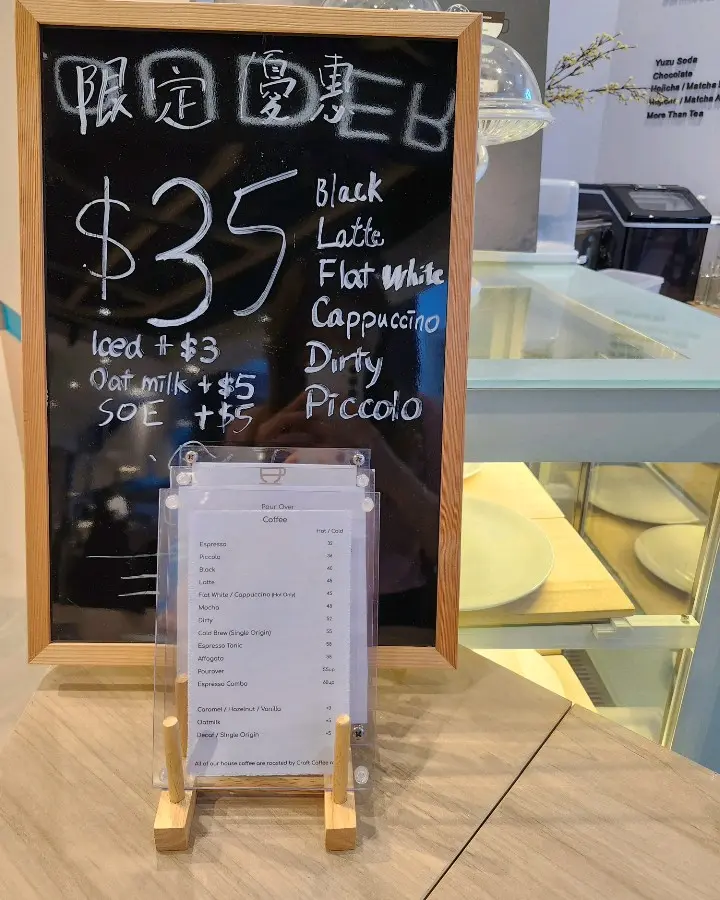 限定優惠
ORDER
$35
Black
Latte
Flat White
Cappuccino
Dirty
Piccolo
Iced + $3
Oat milk + $5
SOE + $5
Pour Over
Coffee
Hot / Cold
Espresso
Piccolo
Black
Latte
Flat White / Cappuccino (Hot Only)
Mocha
Dirty
Cold Brew (Single Origin)
Espresso Tonic
Affogato
Pourover
Espresso Combo
Caramel / Hazelnut / Vanilla +3
Oatmilk +5
Decaf / Single Origin +5
All of our house coffee are roasted by Craft Coffee
Yuzu Soda
Chocolate
Hojicha / Matcha
/ Matcha
More Than Tea